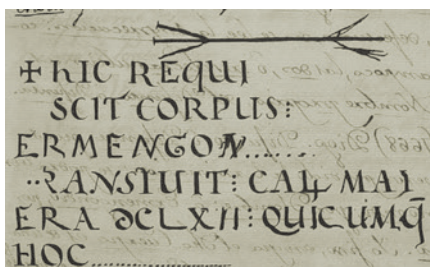 + hIC REQUI
SCIT CORPUS:
ERMENGON.......
..RANSIUIT: CAL MAI
ERA DCLXII: QUICUMQ̄
HOC..............